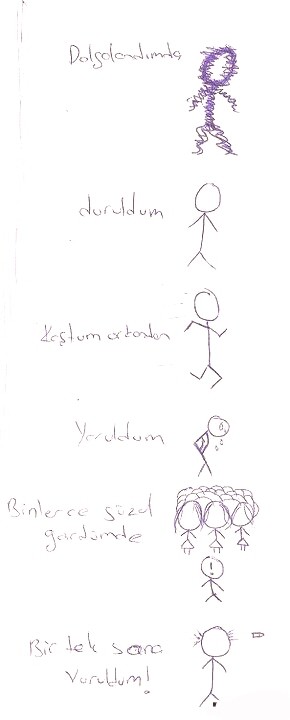 Dalgalandımda
duruldum
Koştum ardından
Yoruldum
Binlerce güzel
gördümde
Bir tek sana
Vuruldum!